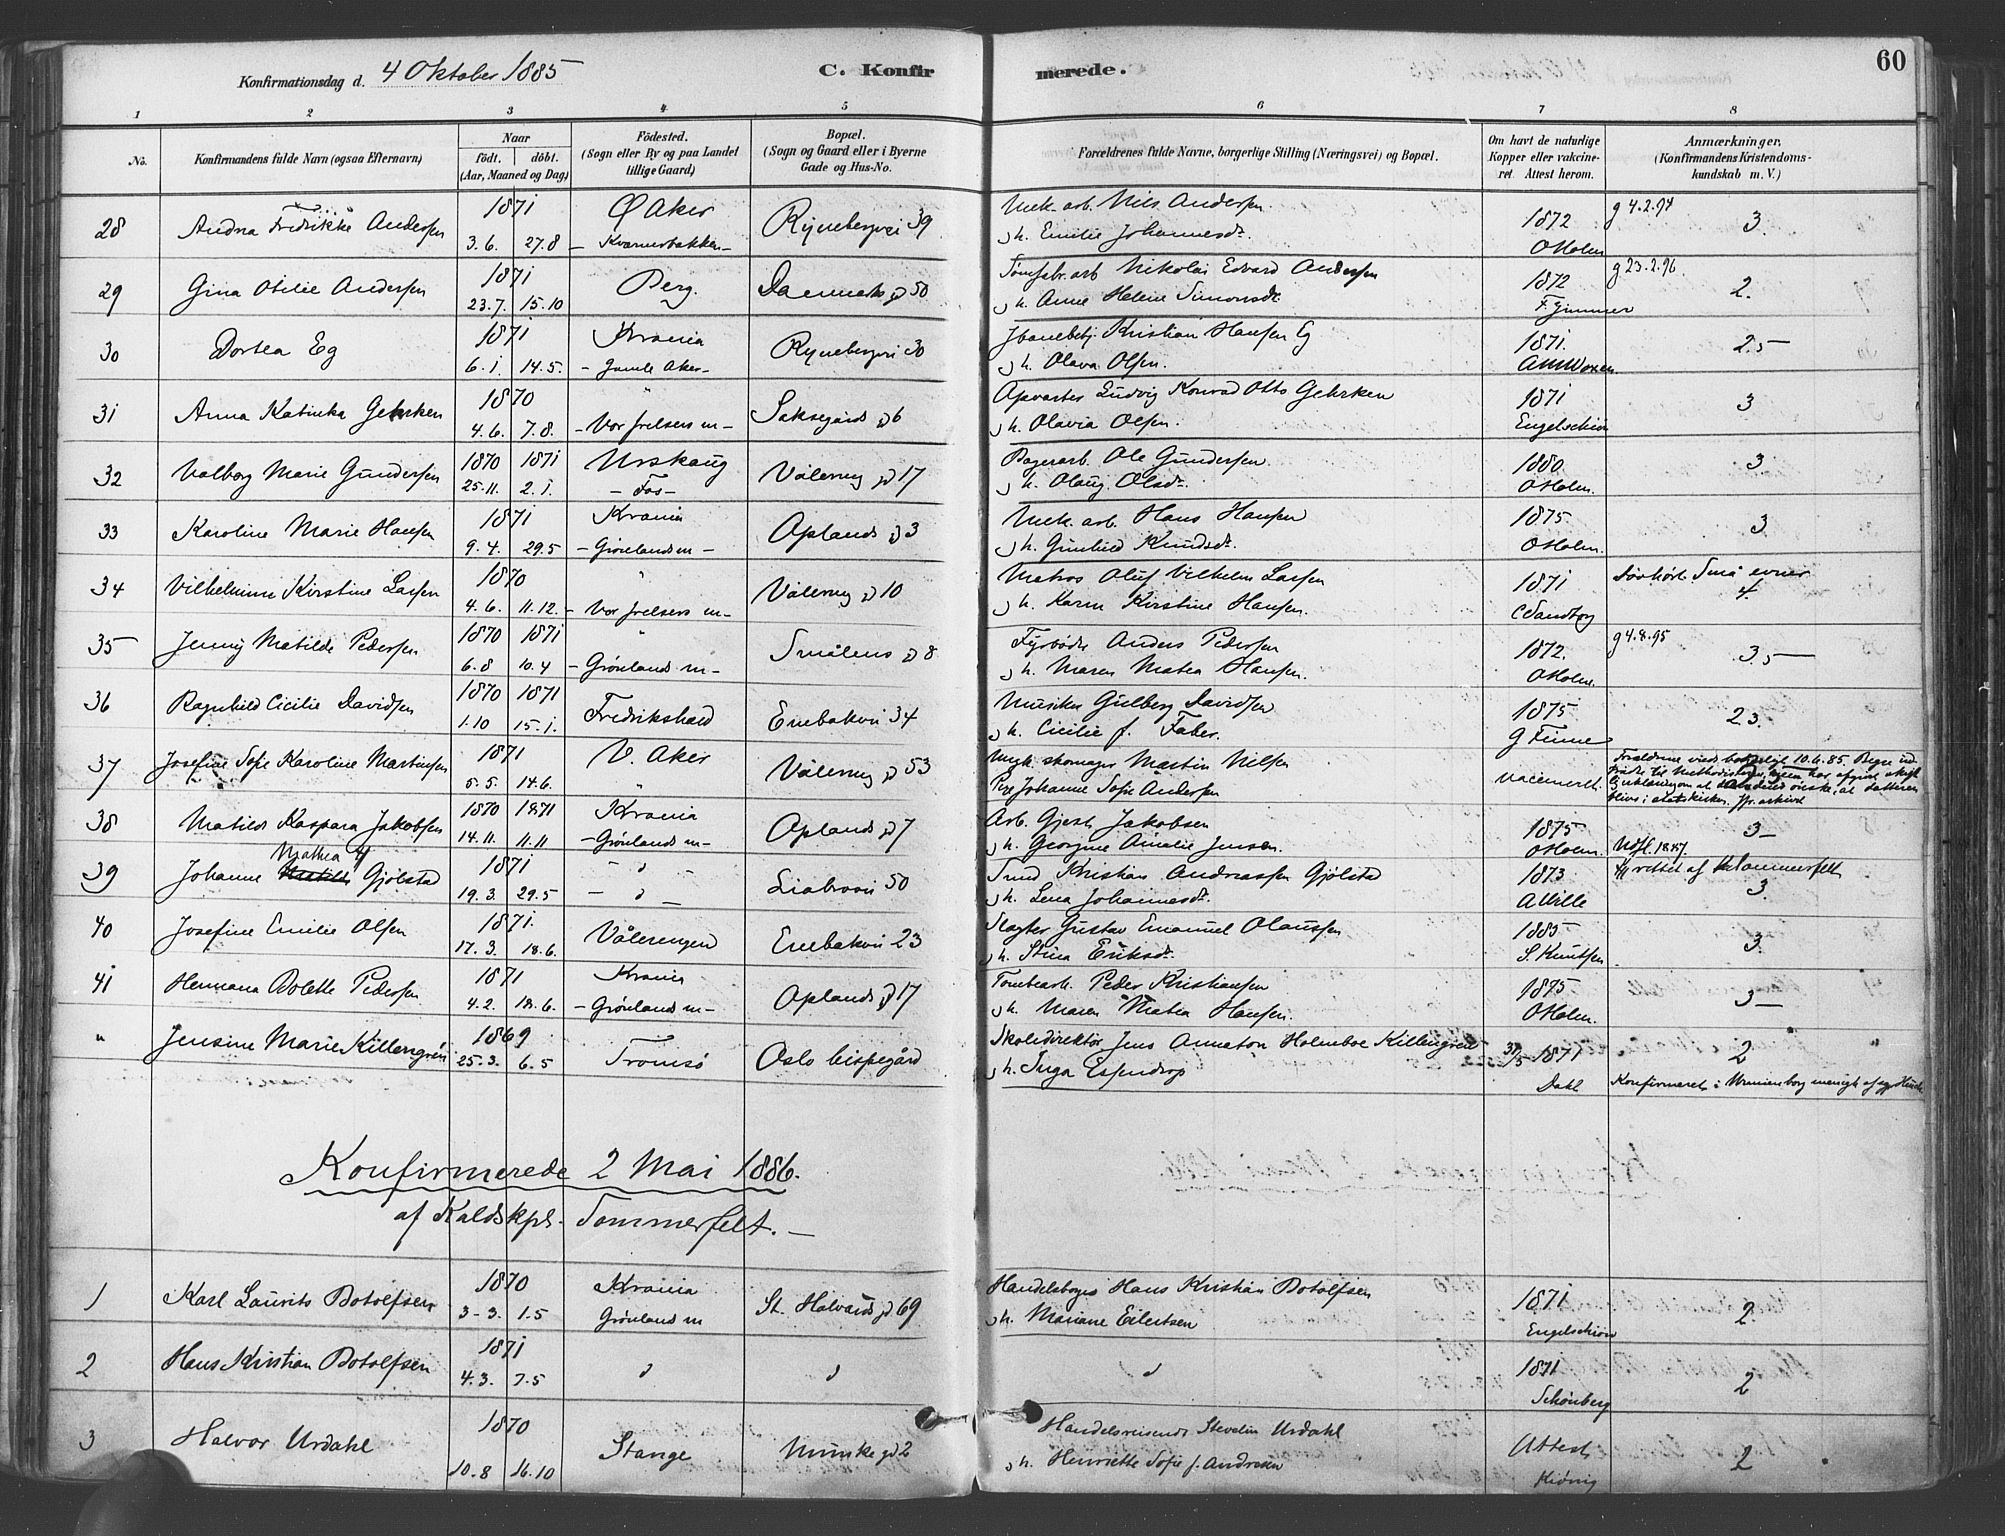 Konfirmationsdag d. 4 Oktober 1885 C. Konfirmerede. 60
1 2 3 4 5 6 7 8
No.
Konfirmandens fulde Navn (ogsaa Efternavn)
Naar
födt. döbt.
(Aar, Maaned og Dag)
Födested.
(Sogn eller By og paa Landet
tillige Gaard)
Bopæl.
(Sogn og Gaard eller i Byerne
Gade og Hus-No.
Forældrenes fulde Navne, borgerlige Stilling (Næringsvei) og Bopæl.
Om havt de naturlige
Kopper eller vakcine-
ret. Attest herom.
Anmærkninger.
(Konfirmandens Kristendoms-
kundskab m. V.)
28 Andrea Fredrikke Andersen 1871 Ø Aker Rynebergvei 39 Mek. arb. Nils Andersen 1872 g 4.2.94 3
3.6. 27.8 – Kværnerbakken – h. Emilie Johannesdr. O Holm
29 Gina Otilie Andersen 1871 Berg. Danmarks g 50 Tømfabr. arb Nikolai Edvard Andersen 1872 g 23.2.96. 2.
23.7. 15.10 h. Anne Helene Simonsdr. F. Gjimmer
30 Dortea Eg 1871 Krania Rynebergvei 30 Jbanebetj. Kristian Hansen Eg 1871. 2.5
6.1. 14.5. – Gamle Aker – h. Olava Olsen.
31 Anna Katinka Gehrken 1870 " Saksegårds g 6 Opvarter Ludvig Konrad Otto Gehrken 1871 3
4.6. 7.8. – Vor frelsers m – h. Olavia Olsen. Engelschiøn
32 Valborg Marie Gundersen 1870 1871 Urskaug Vålereng g 17 Bagerarb. Ole Gundersen 1880. 3
25.11. 2.1. – Fos – h. Olaug Olsdr. O Holm.
33 Karoline Marie Hansen 1871 Krania Oplands g 3 Mek. arb. Hans Hansen 1875 3
9.4. 29.5 – Grønlands m – h. Gunhild Knudsdr. O Holm.
34 Vilhelmine Kirstine Larsen 1870 " Vålereng g 10 Matros Oluf Vilhelm Larsen 1871 Døvhørt. Små evner 4.
4.6. 11.12. – Vor frelsers m – h. Karen Kirstine Hansen. C Sandberg
35 Jenny Matilde Pedersen 1870 1871 " Smålens g 8 Fyrbøde Anders Pedersen 1872. g 4.8.95 3.5
6.8 10.4 – Grønlands m – h. Maren Matea Hansen. O Holm.
36 Ragnhild Cicilie Davidsen 1870 1871 Fredrikshald Enebakvei 34 Musiker Gulberg Davidsen 1875 23.
1.10 15.1. h. Cicilie f. Faber. G Finne
37 Josefine Sofie Karoline Martinsen 1871 V. Aker Vålereng g 53 Mek. skomager Martin Nilsen vaccineret. Forældrene viede borgerligt 10.6.85. Begge
5.5. 14.6. " Pige Johanne Sofie Andersen
38 Matilde Kaspara Jakobsen 1870 1871 Krania Oplands g 7 Arb. Gjest Jakobsen 1875 3
14.11. 11.11 – Grønlands m – h. Georgine Amalie Jensen. O Holm.
39 Johanne Mathea Gjølstad 1871 Liabrovei 50 Smed Kristian Andreassen Gjølstad 1873 Udfl. 1887. rettet af K. Sommerfelt 3.
19.3. 29.5 h. Lena Johannesdr. A Wille
40 Josefine Emilie Olsen 1871. Vålerengen Enebakvei 23 Slagter Gustav Emanuel Olaussen 1885 3
17.3. 18.6. h. Stina Eriksdr. S. Knutsen
41 Hermana Bolette Pedersen 1871 Krania Oplands g 17 Tomtearb. Peder Kristiansen 1875 3
4.2. 18.6. – Grønlands m – h. Maren Matea Hansen. O Holm.
" Jensine Marie Killengreen 1869 Tromsø Oslo bispegård Skoledirektør Jens Anneton Holmboe Killengreen 31/5 1871 2
25.3. 6.5 h. Inga Essendrop Dahl Konfirmeret i Uranienborg menigh af
Konfirmerede 2 Mai 1886.
af Kaldskpl. Sommerfelt. –
1 Karl Laurits Botolfsen 1870 Krania St. Halvards gd 69 Handelsborger Hans Kristian Botolfsen 1871 2.
3-3. 1.5 Grønlands m h. Mariane Eilertsen Engelschiøn
2 Hans Kristian Botolfsen 1871 1871 2
4.3. 7.5 Schönberg
3 Halvor Urdahl 1870 Stange Munke gd 2 Handelsreisende Stevelin Urdahl Attest 2
10.8 16.10 h. Henriette Sofie f. Andresen Kiønig